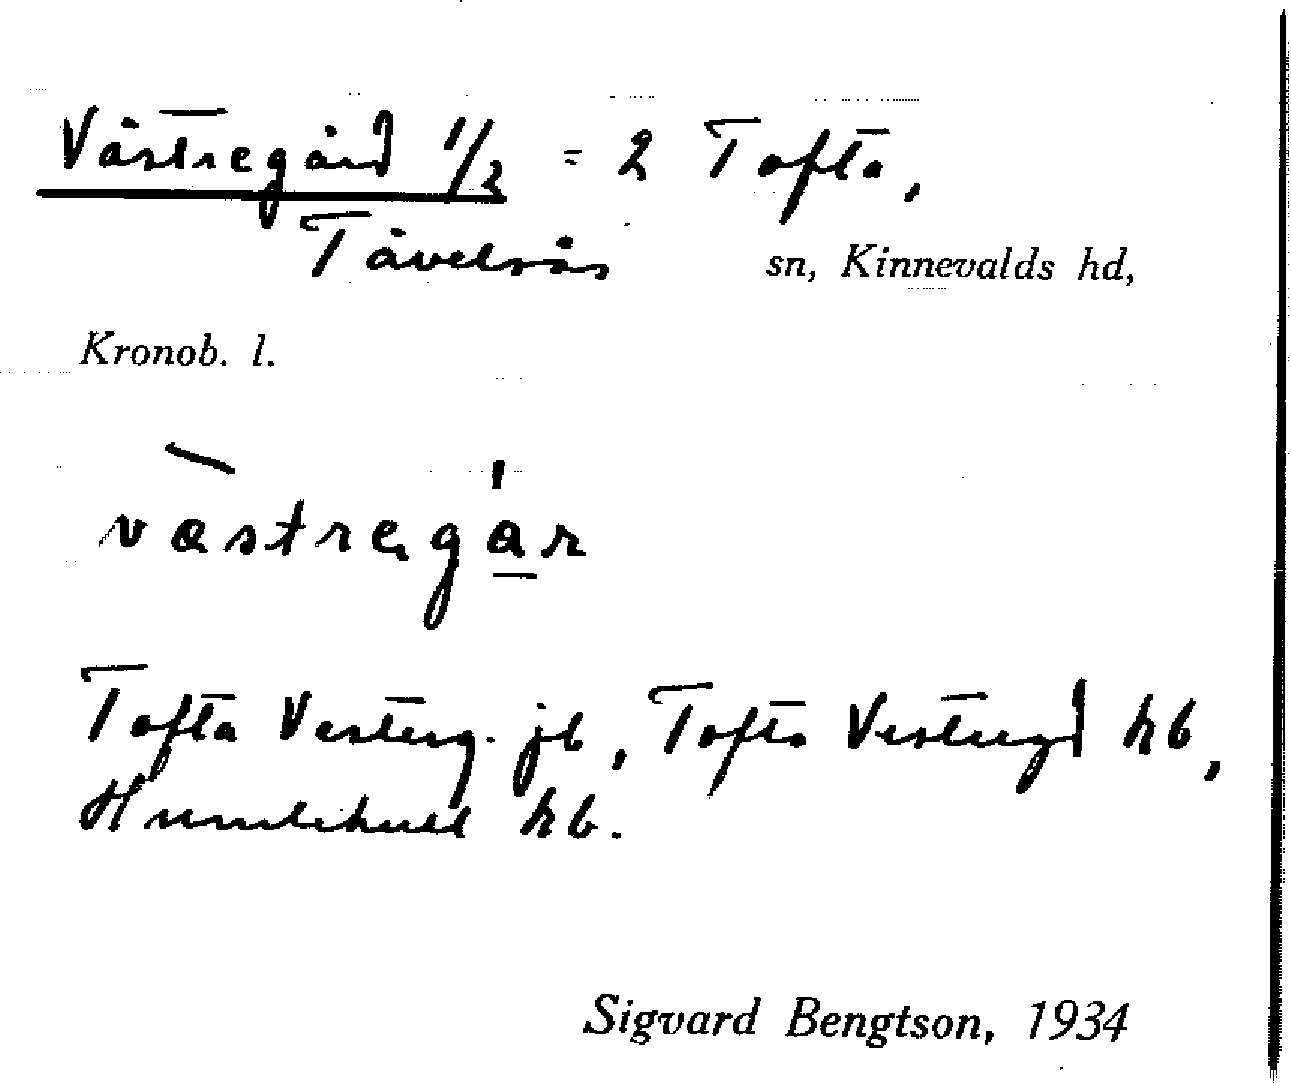 Västregård 1/2 = 2 Tofta,
Tävelsås sn, Kinnevalds hd,
Kronob. l.
västregår
Tofta Vesterg. jb, Tofta Vestregd hb,
Humlehult hb.
Sigvard Bengtson, 1934